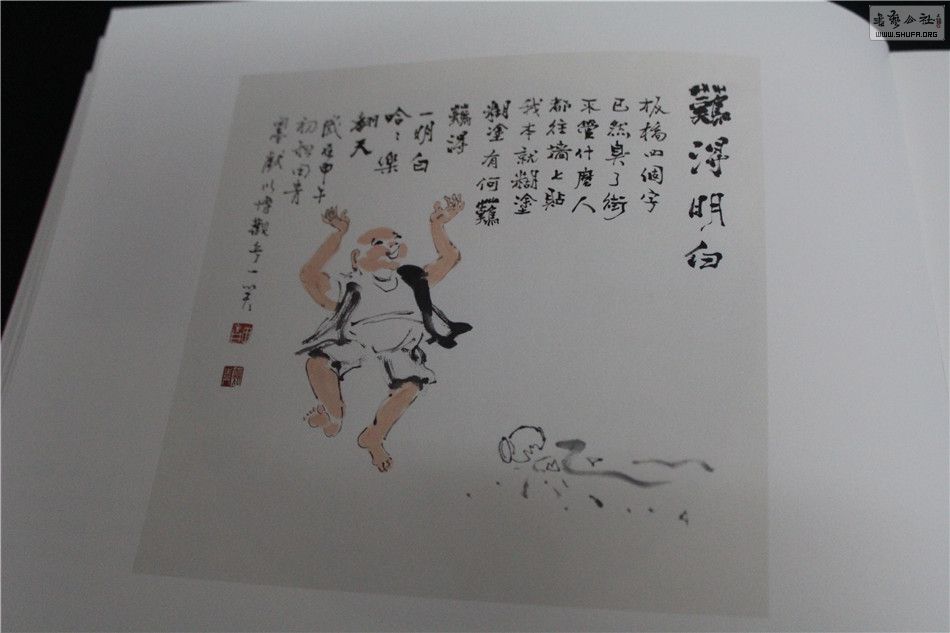 難得明白
板橋四個字
已然臭了街
不管什麼人
都往牆上貼
我本就糊塗
糊塗有何難
難得
一明白
哈哈樂
翻天
歲在甲午
初秋田青
墨獻以博觀者一笑
書藝公社
WWW.SHUFA.ORG